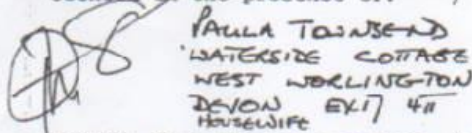 PAULA TOWNSEND
WATERSIDE COTTAGE
WEST WORLINGTON
DEVON EX17 4TT
HOUSEWIFE